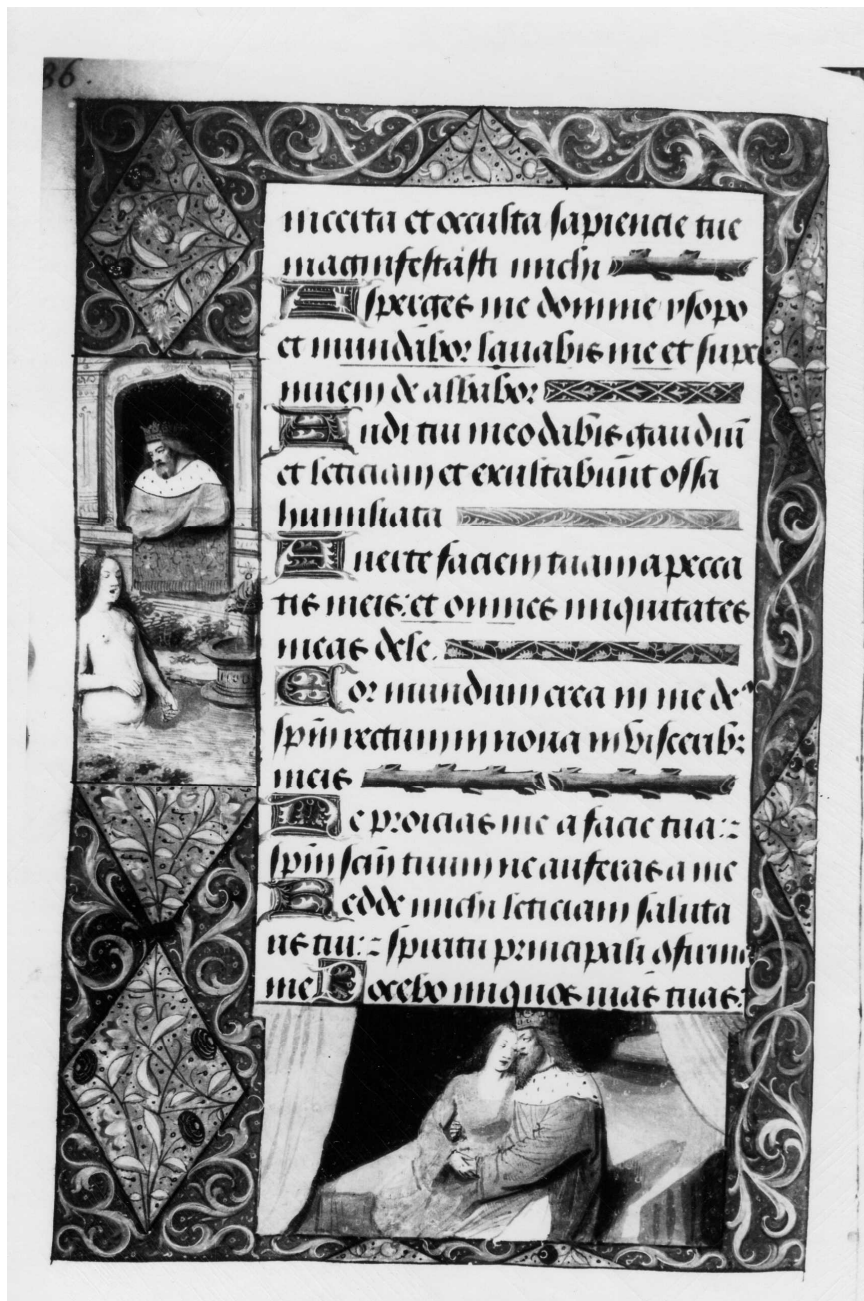 86.
incerta et occulta sapiencie tue
manifestasti michi
Asperges me domine ysopo
et mundabor lauabis me et supr
niuem de albabor
Audi tui meo dabis gaudiū
et leticiam et exultabunt ossa
humiliata
Auerte faciem tuam a pecca
tis meis: et omnes iniquitates
meas dele.
Cor mundum crea in me de9
spm̄ rectum in noua in viscerib:
meis
Ne proicias me a facie tua:
spm̄ scm̄ tuum ne auferas a me
Redde michi leticiam saluta
ris tui: spiritu principali ꝯfirma
me Docebo iniquos uias tuas: